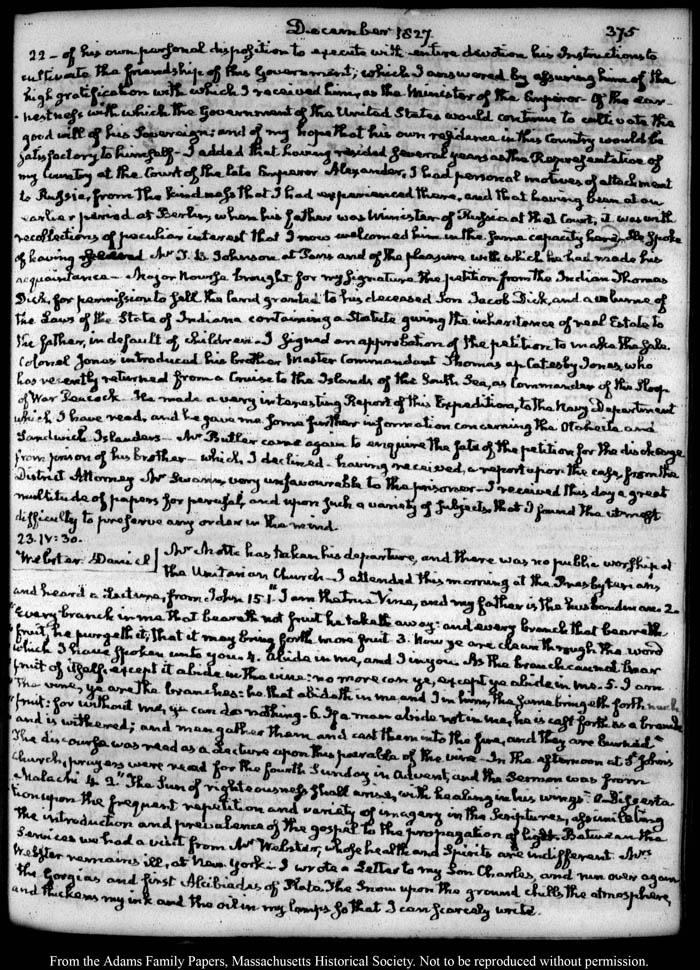 December 1827.
375
22 – of his own personal disposition to execute with entire devotion his Instructions to
cultivate the friendship of this Government; which I answered by assuring him of the
high gratification with which I received him, as the Minister of the Emperor – Of the ear-
-nestness with which the Government of the United States would continue to cultivate the
good will of his Sovereign; and of my hope that his own residence in this Country would be
satisfactory to himself – I added that having resided several years as the Representative of
my Country at the Court of the late Emperor Alexander, I had personal motives of attachment
to Russia, from the kindness that I had experienced there, and that having been at an
earlier period at Berlin, when his father was Minister of Russia at that Court, it was with
recollections of peculiar interest that I now welcomed him in the same capacity here. He spoke
of having Mr. T. B. Johnson at Paris and of the pleasure with which he had made his
acquaintance – Major Nourse brought for my signature the petition from the Indian Thomas
Dick, for permission to sell the land granted to his deceased Son Jacob Dick, and a volume of
the Laws of the State of Indiana containing a Statute giving the inheritance of real Estate to
the father, in default of children – I signed an approbation of the petition to make the Sale.
Colonel Jones introduced his brother Master Commandant Thomas ap Catesby Jones, who
has recently returned from a Cruise to the Islands of the South Sea, as Commander of the Sloop
of War Peacock. He made a very interesting Report of this Expedition, to the Navy Department
which I have read, and he gave me some further information concerning the Otaheite and
Sandwich Islanders – Mr. Butler came again to enquire the fate of the petition for the discharge
from prison of his brother – which I declined – having received, a report upon the case, from the
District Attorney Mr. Swann, very unfavourable to the prisoner – I received this day a great
multitude of papers for perusal, and upon such a variety of subjects that I found the utmost
difficulty to preserve any order in the mind.
23. IV: 30.
Webster Daniel
Mr. Motte has taken his departure, and there was no public worship at
the Unitarian Church – I attended this morning at the Presbyterian's
and heard a Lecture, from John 15.1. "I am the true Vine, and my father is the husbandman: 2.
"Every branch in me that beareth not fruit he taketh away: and every branch that beareth
"fruit, he purgeth it, that it may bring forth more fruit 3. Now ye are clean through the word
which I have spoken unto you. 4. Abide in me, and I in you. As the branch cannot bear
fruit of itself, except it abide in the vine: no more can ye, except ye abide in me. 5. I am
"The vine, ye are the branches: he that abideth in me and I in him, the same bringeth forth much
"fruit: for without me, ye can do nothing – 6. If a man abide not in me, he is cast forth as a branch
"and is withered; and men gather them, and cast them into the fire, and they are burned"
The discourse was read as a Lecture upon this parable of the vine – In the afternoon at St. John's
Church, prayers were read for the fourth Sunday in Advent, and the Sermon was from
Malachi 4. 2 "The Sun of righteousness shall arise, with healing in his wings". A Disserta-
tion upon the frequent repetition and variety of imagery in the Scriptures, assimilating
the introduction and prevalence of the gospel to the propagation of light. Between the
Services we had a visit from Mr. Webster, whose health and Spirits are indifferent. Mrs.
Webster remains ill, at New York – I wrote a Letter to my Son Charles, and run over again
the Gorgias and first Alcibiades of Plato. The Snow upon the ground chills the atmosphere,
and thickens my ink and the oil in my lamps so that I can scarcely write.
From the Adams Family Papers, Massachusetts Historical Society. Not to be reproduced without permission.